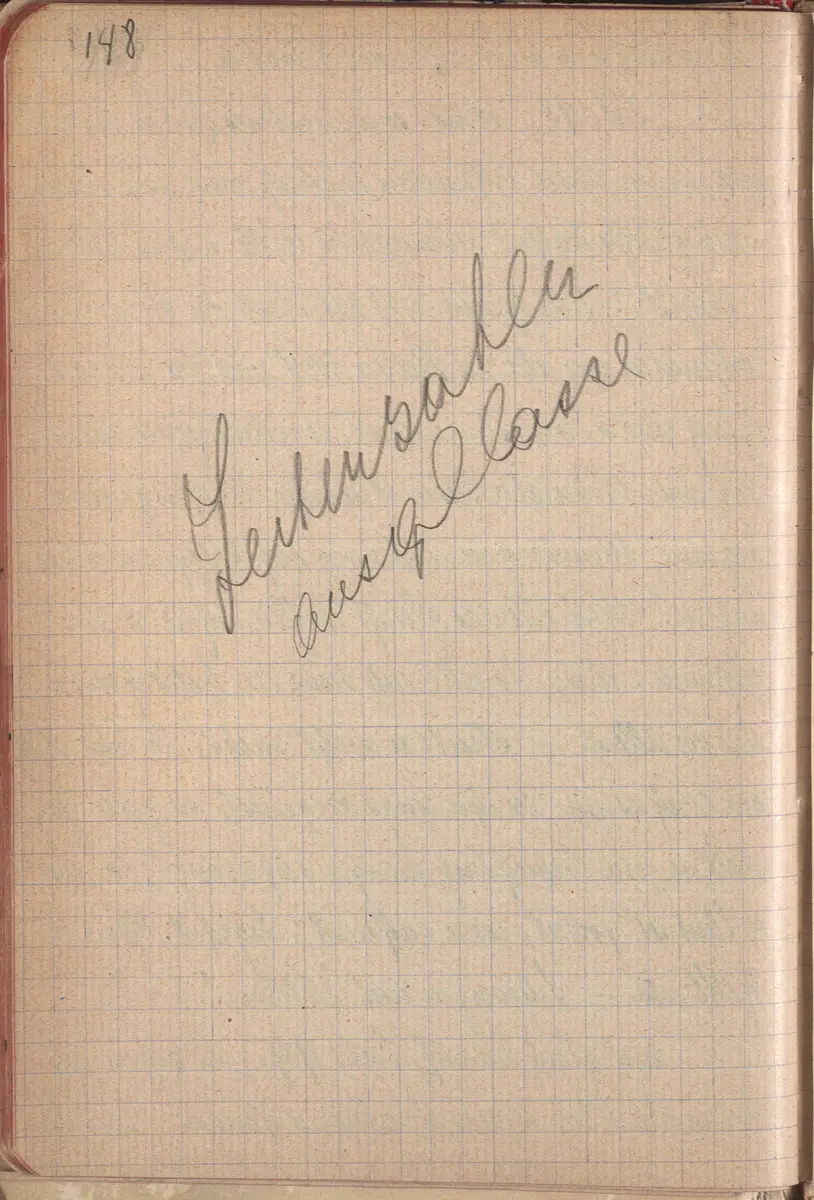 148
Seitenzahlen
ausgelasse